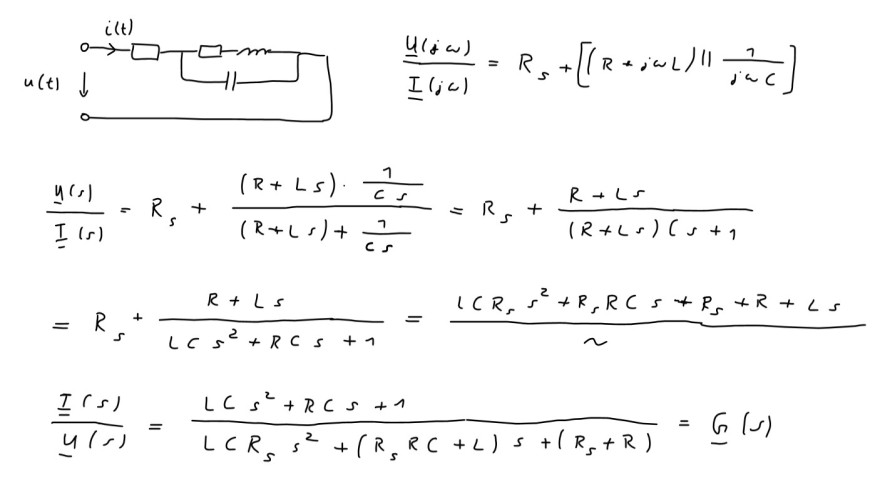 i(t)
u(t)
U(jω)/I(jω) = R_s + [(R + jωL) || 1/(jωC)]
U(s)/I(s) = R_s + ((R + Ls) · 1/(Cs))/((R + Ls) + 1/(Cs)) = R_s + (R + Ls)/((R + Ls)Cs + 1)
= R_s + (R + Ls)/(LCs² + RCs + 1) = (LCR_s s² + R_s RCs + R_s + R + Ls)/~
I(s)/U(s) = (LCs² + RCs + 1)/(LCR_s s² + (R_s RC + L)s + (R_s + R)) = G(s)